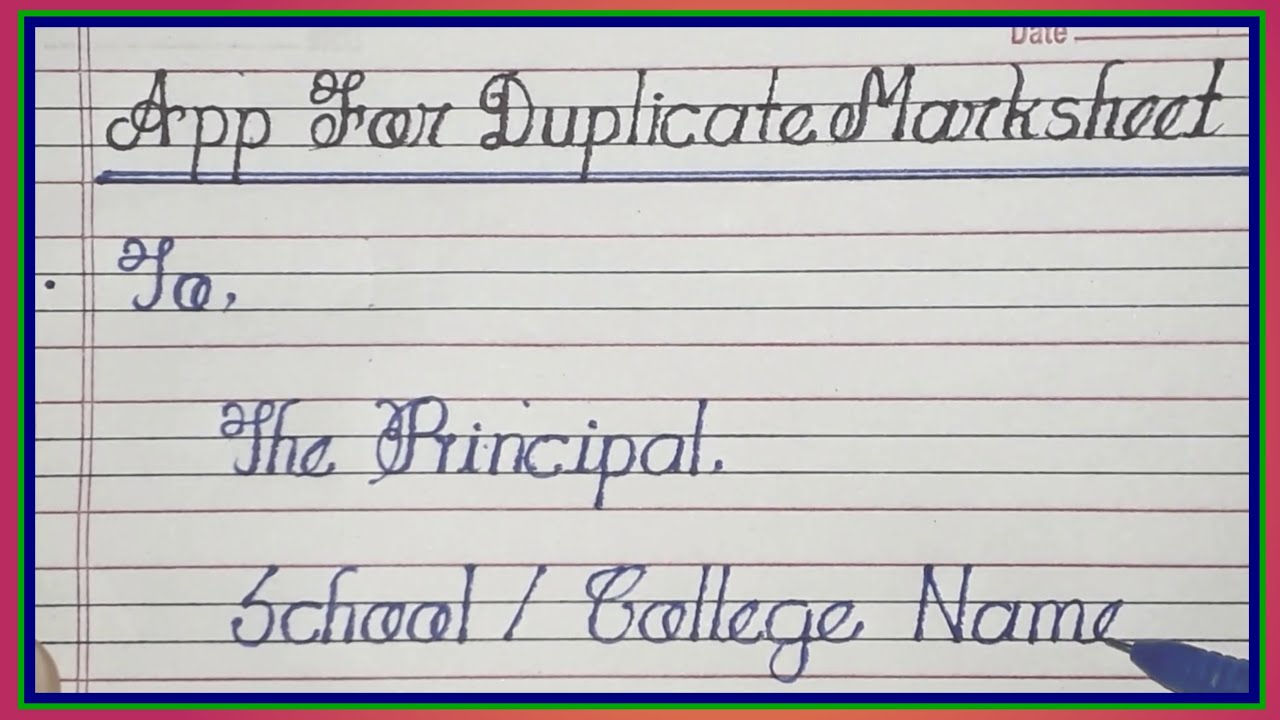 Date
App For Duplicate Marksheet
To,
The Principal.
School / College Name